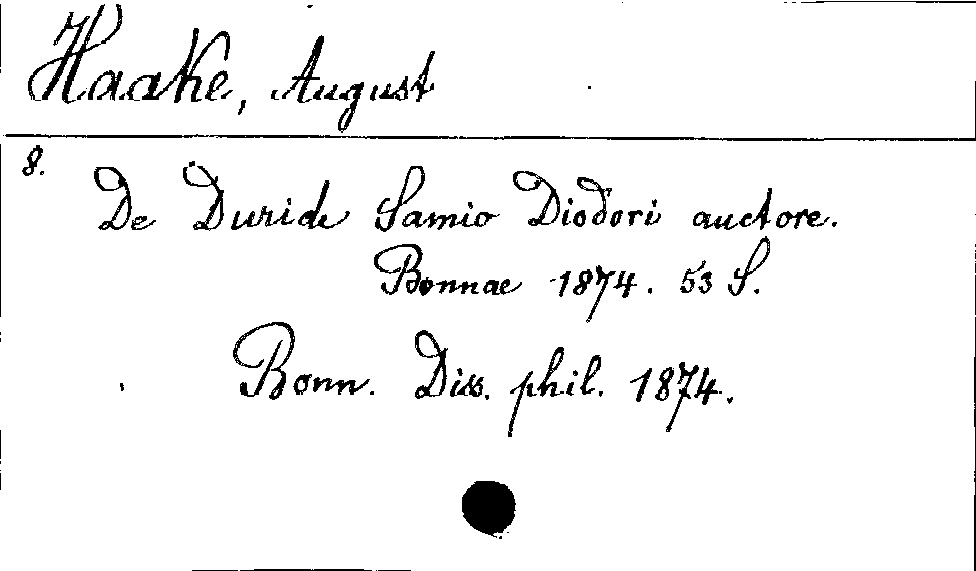 Haake, August
8.
De Duride Samio Diodori auctore.
Bonnae 1874. 53 S.
Bonn. Diss. phil. 1874.